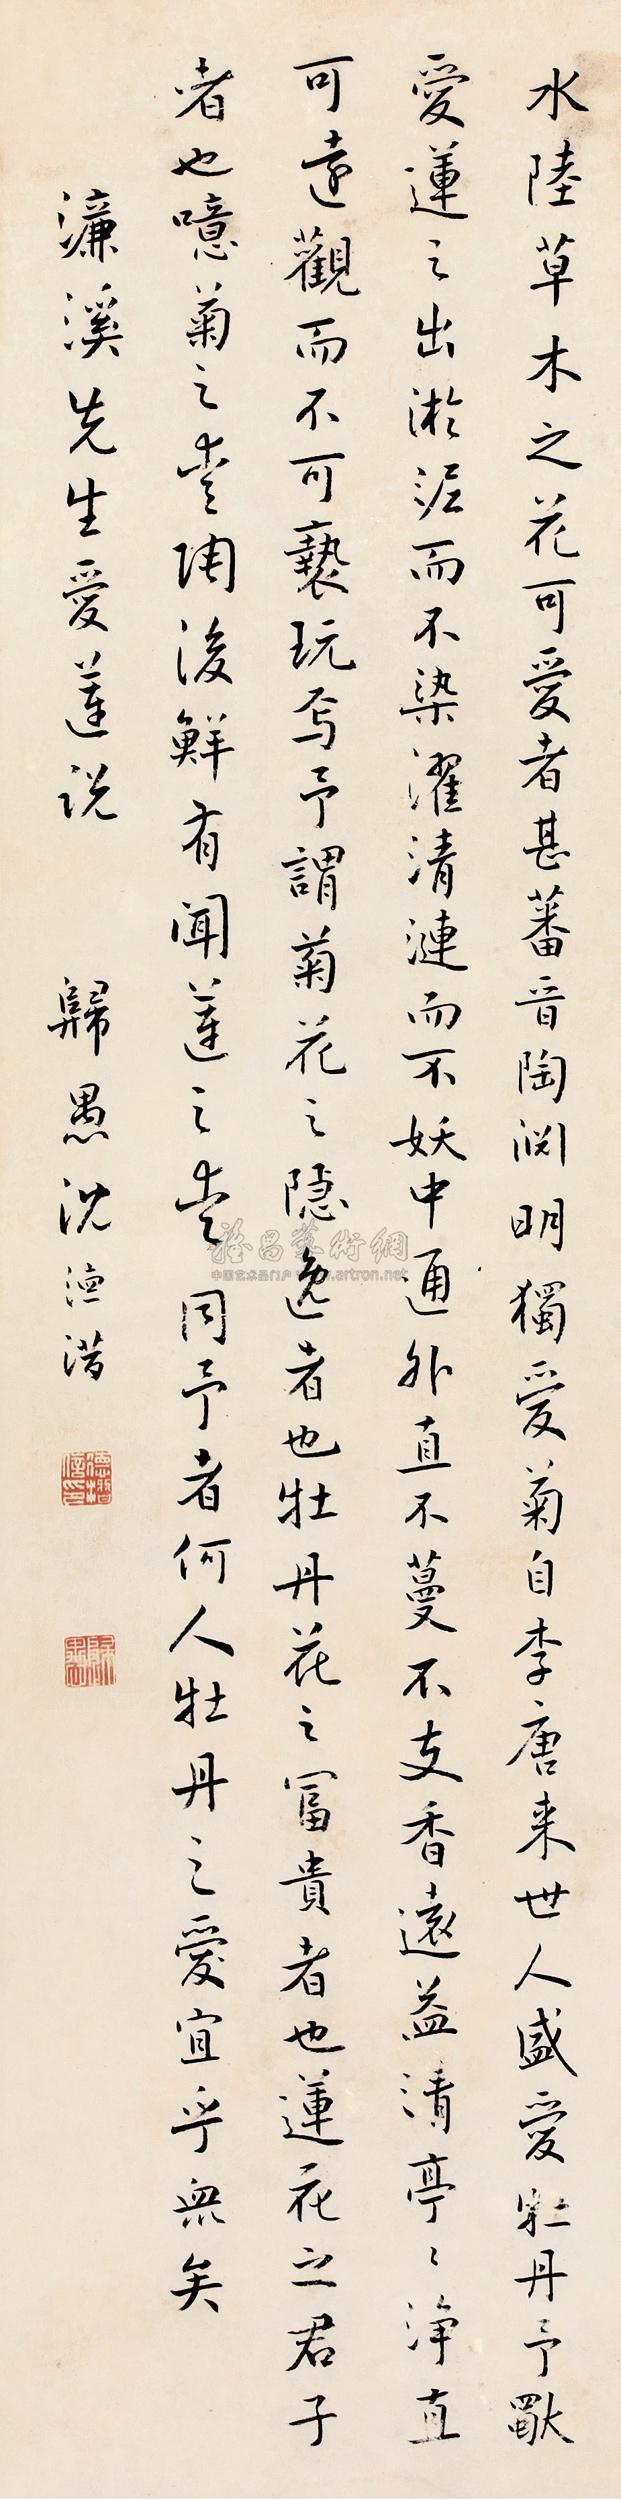 水陸草木之花可愛者甚蕃晉陶渊明獨愛菊自李唐来世人盛愛牡丹予獨
愛蓮之出淤泥而不染濯清漣而不妖中通外直不蔓不支香遠益清亭〻淨直
可遠觀而不可褻玩焉予謂菊花之隐逸者也牡丹花之富貴者也蓮花之君子
者也噫菊之愛陶後鮮有闻蓮之愛同予者何人牡丹之愛宜乎衆矣
濂溪先生愛蓮说 歸愚沈德潜
歸愚
雅昌藝術網
中国艺术品门户 www.artron.net